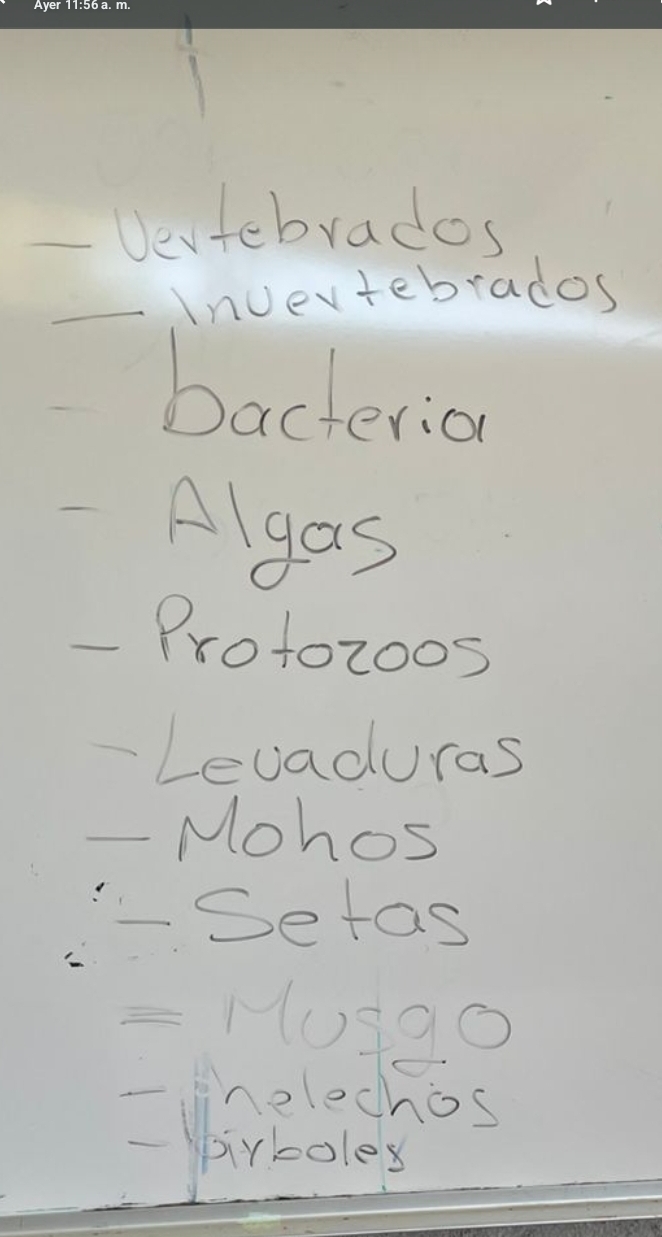 Ayer 11:56 a. m.
- Vertebrados
- Invertebrados
- bacteria
- Algas
- Protozoos
- Levaduras
- Mohos
- Setas
= Musgo
- helechos
- árboles